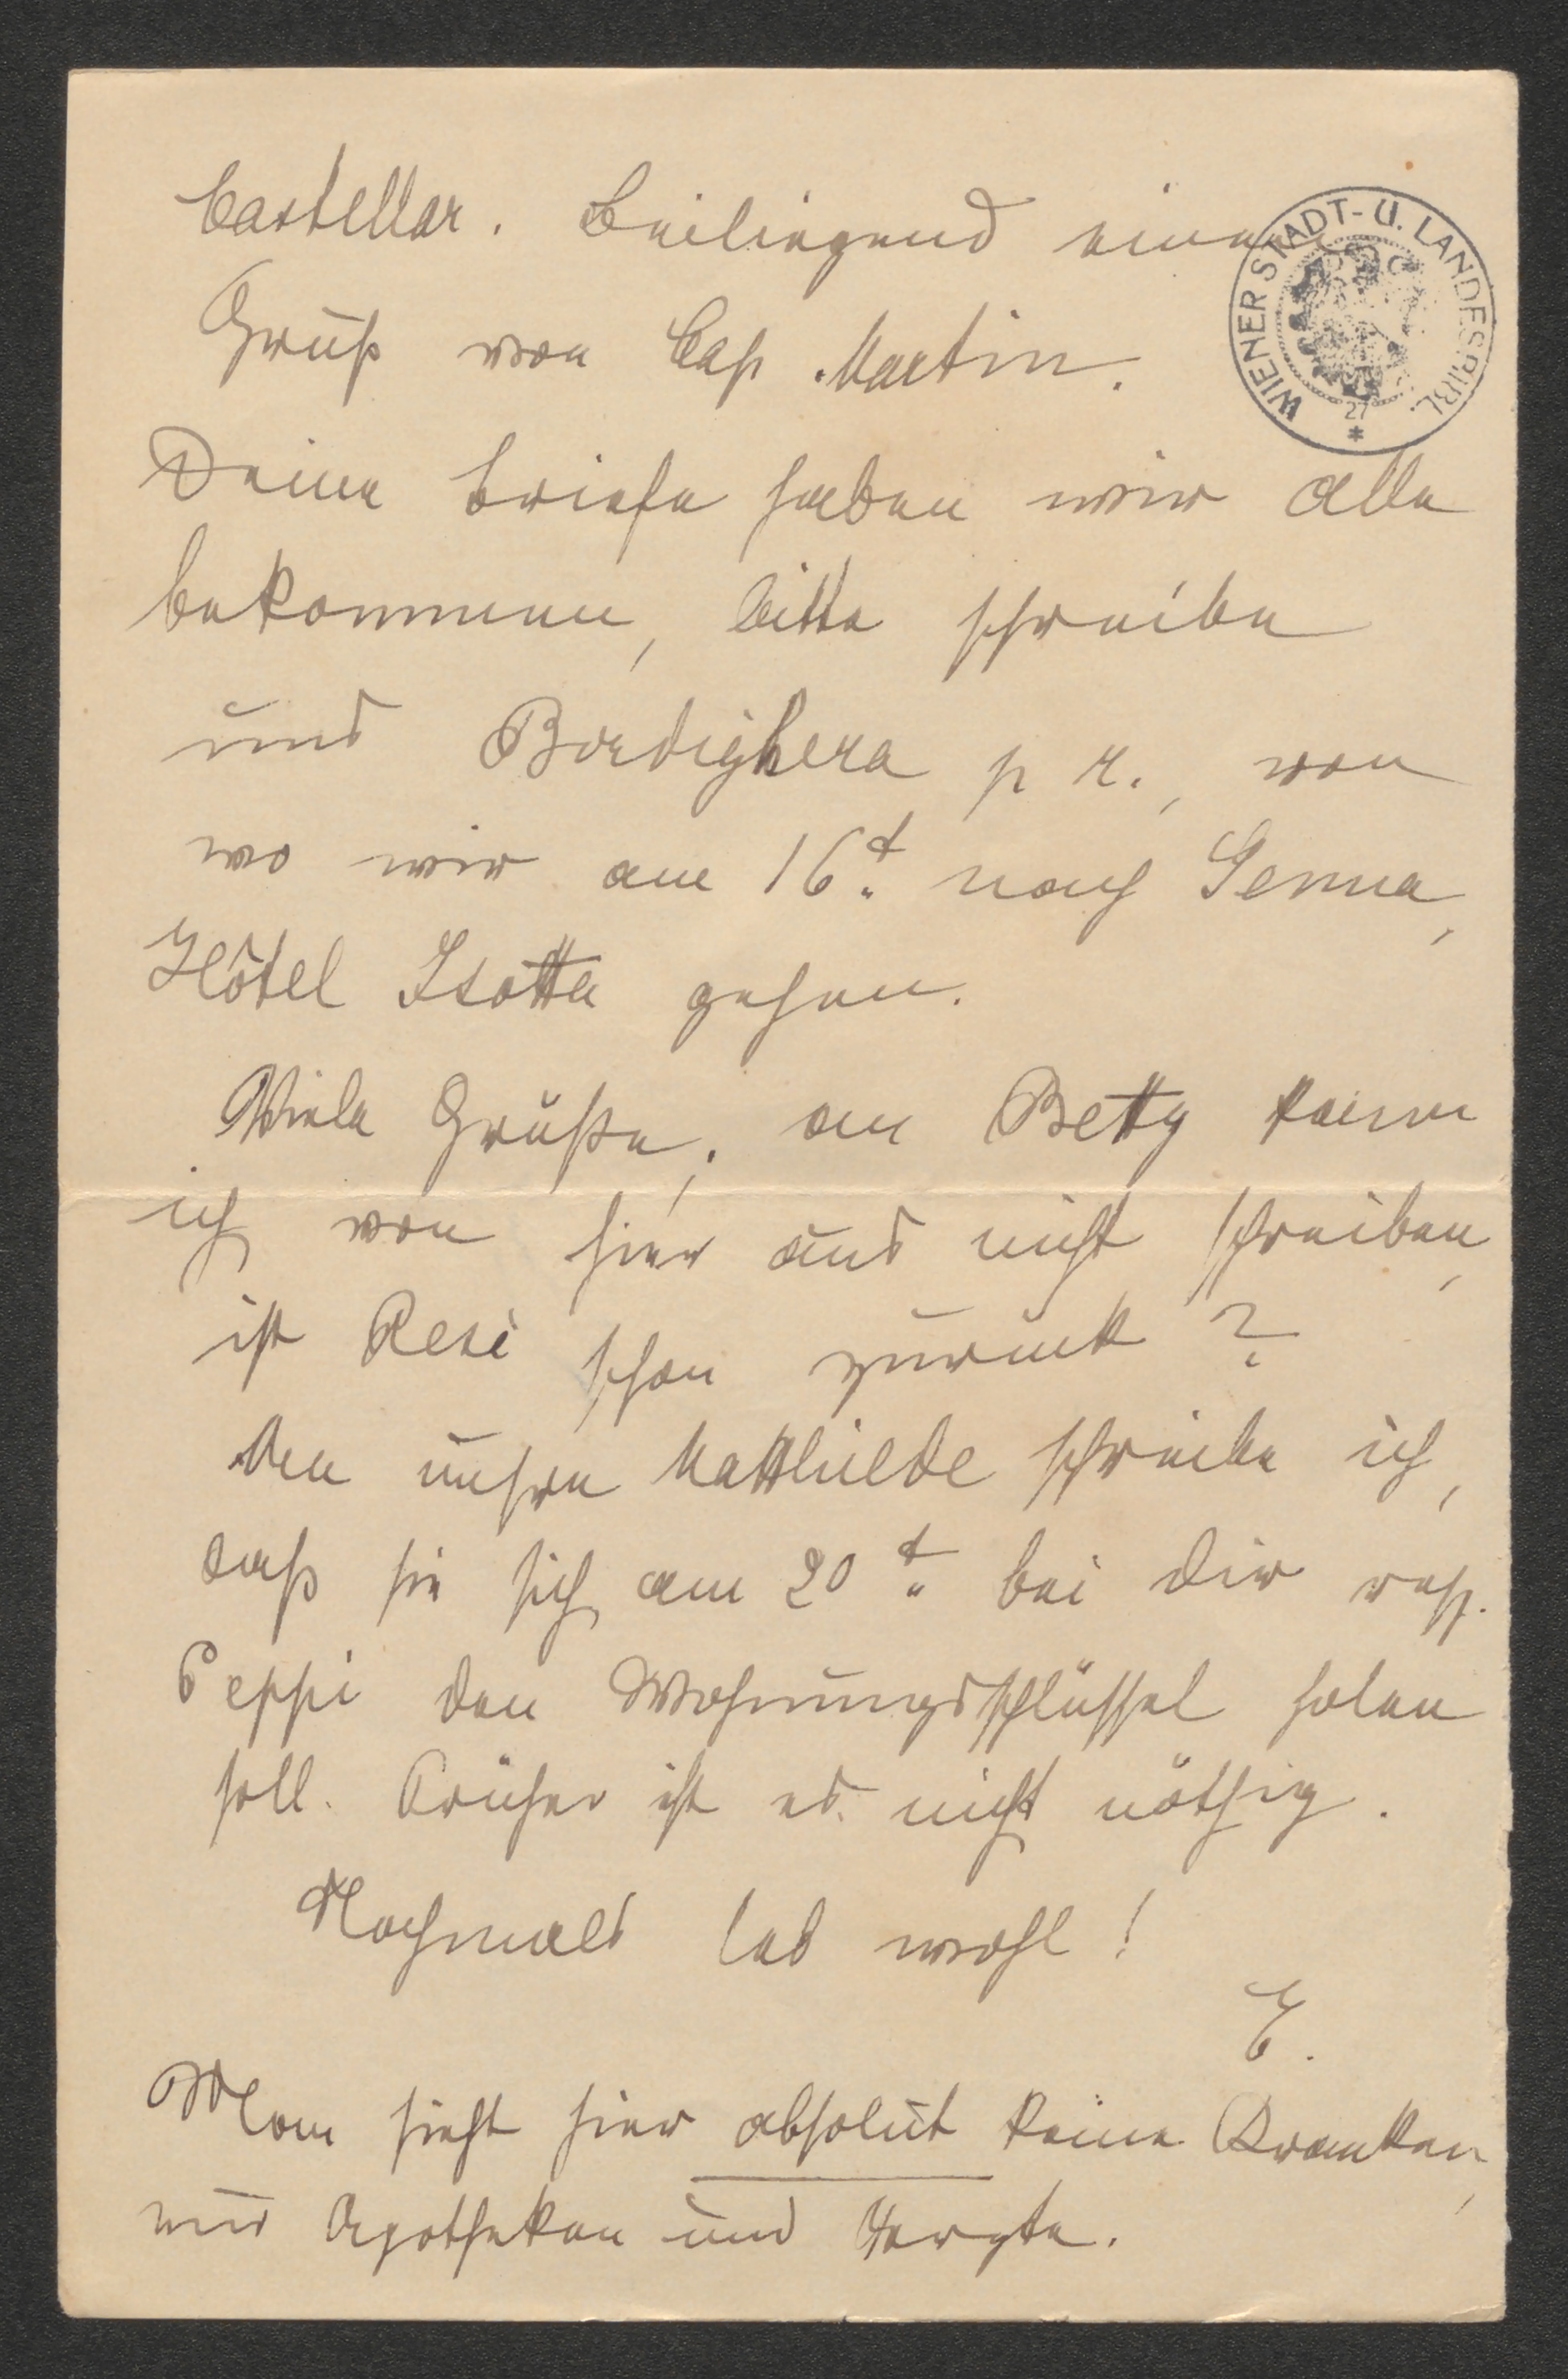 Castellar. Beiliegend einen
Gruß von Cap Martin.
Deine Briefe haben wir alle
bekommen, bitte schreibe
uns Bordighera p r., von
wo wir am 16t. nach Genua,
Hôtel Isotta gehen.
Viele Grüße, an Betty kann
ich von hier aus nicht schreiben,
ist Resi schon zurück?
An unsre Matthilde schreibe ich,
daß sie sich am 20t. bei Dir resp.
Peppi den Wohnungsschlüssel holen
soll. Früher ist es nicht nöthig.
Nochmals leb wohl!
E.
Man sieht hier absolut keine Kranken,
nur Apotheken und Aerzte.
WIENER STADT- U. LANDESBIBL.
27
*